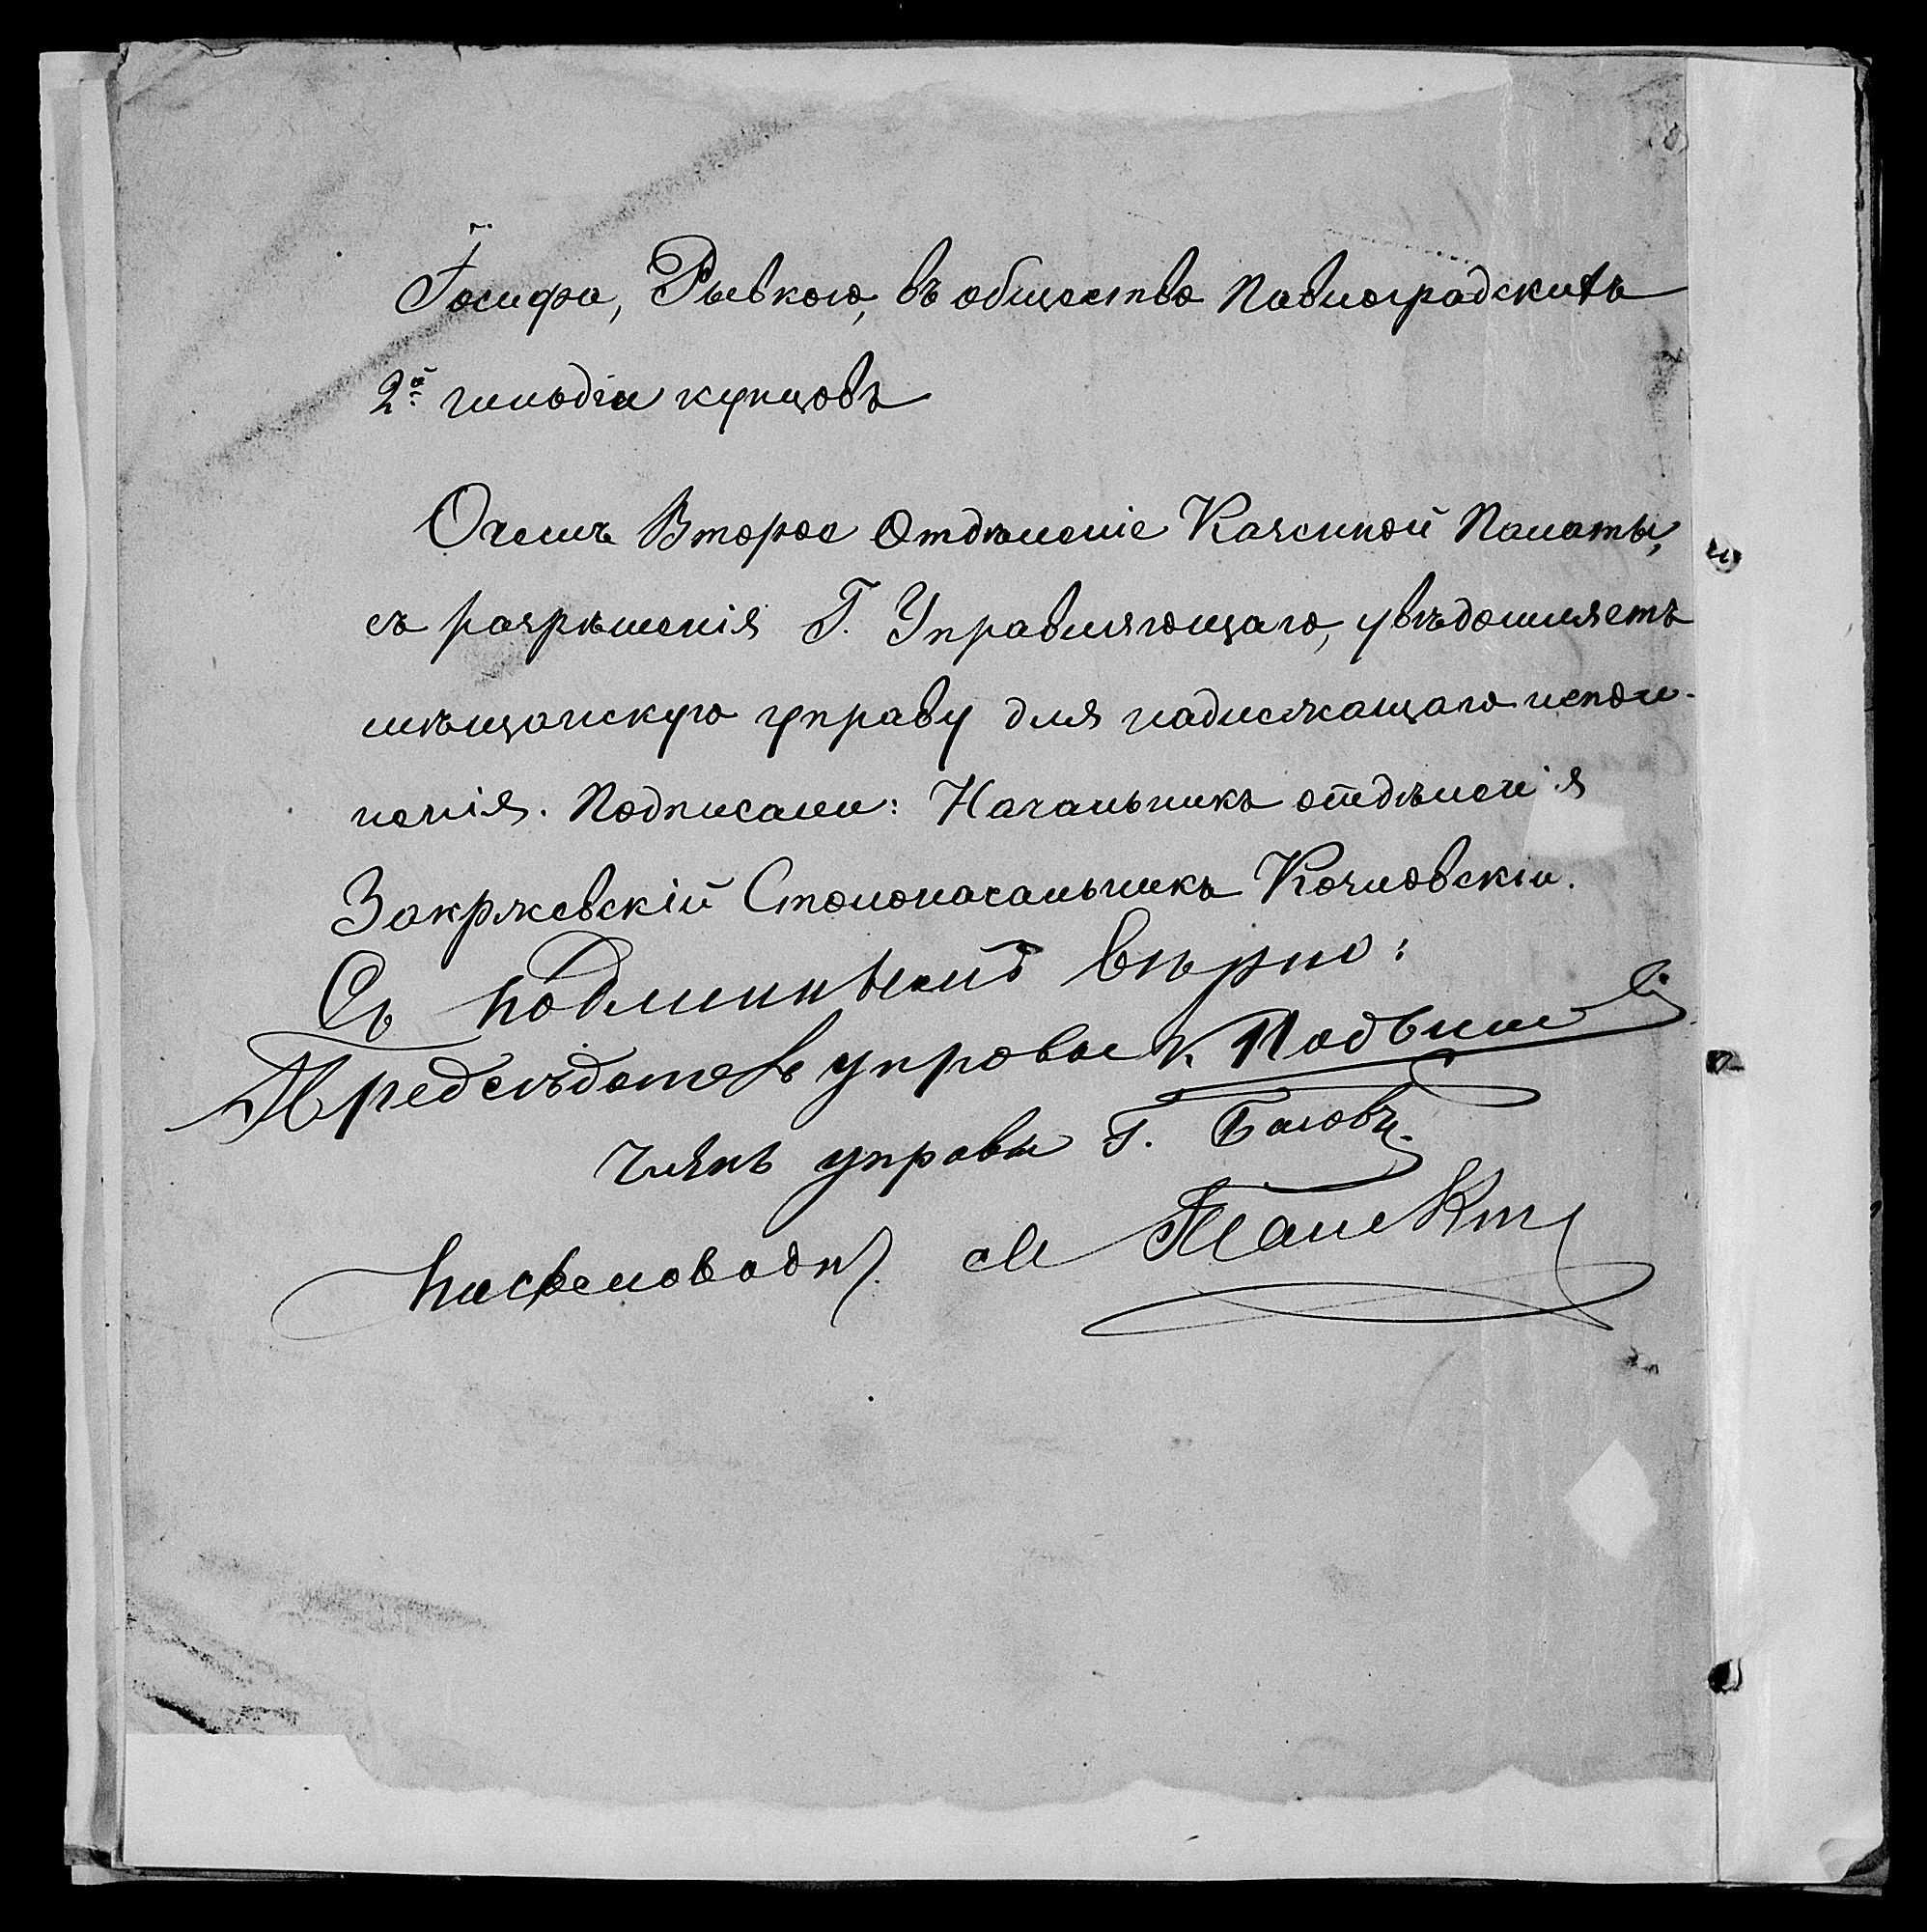 Іосифа, Рывкою, въ общество Павлоградскихъ
2й гильдіи купцовъ
О чемъ Второе Отдѣленіе Казенной Палаты,
съ разрѣшенія Г. Управляющаго, увѣдомляетъ
мѣщанскую управу для надлежащаго испол-
ненія. Подписали: Начальникъ отдѣленія
Закржевскій Столоначальникъ Козловскій.
Съ подлиннымъ вѣрно:
Предсѣдатель управы К.
Членъ управы Г.
Письмоводит. М